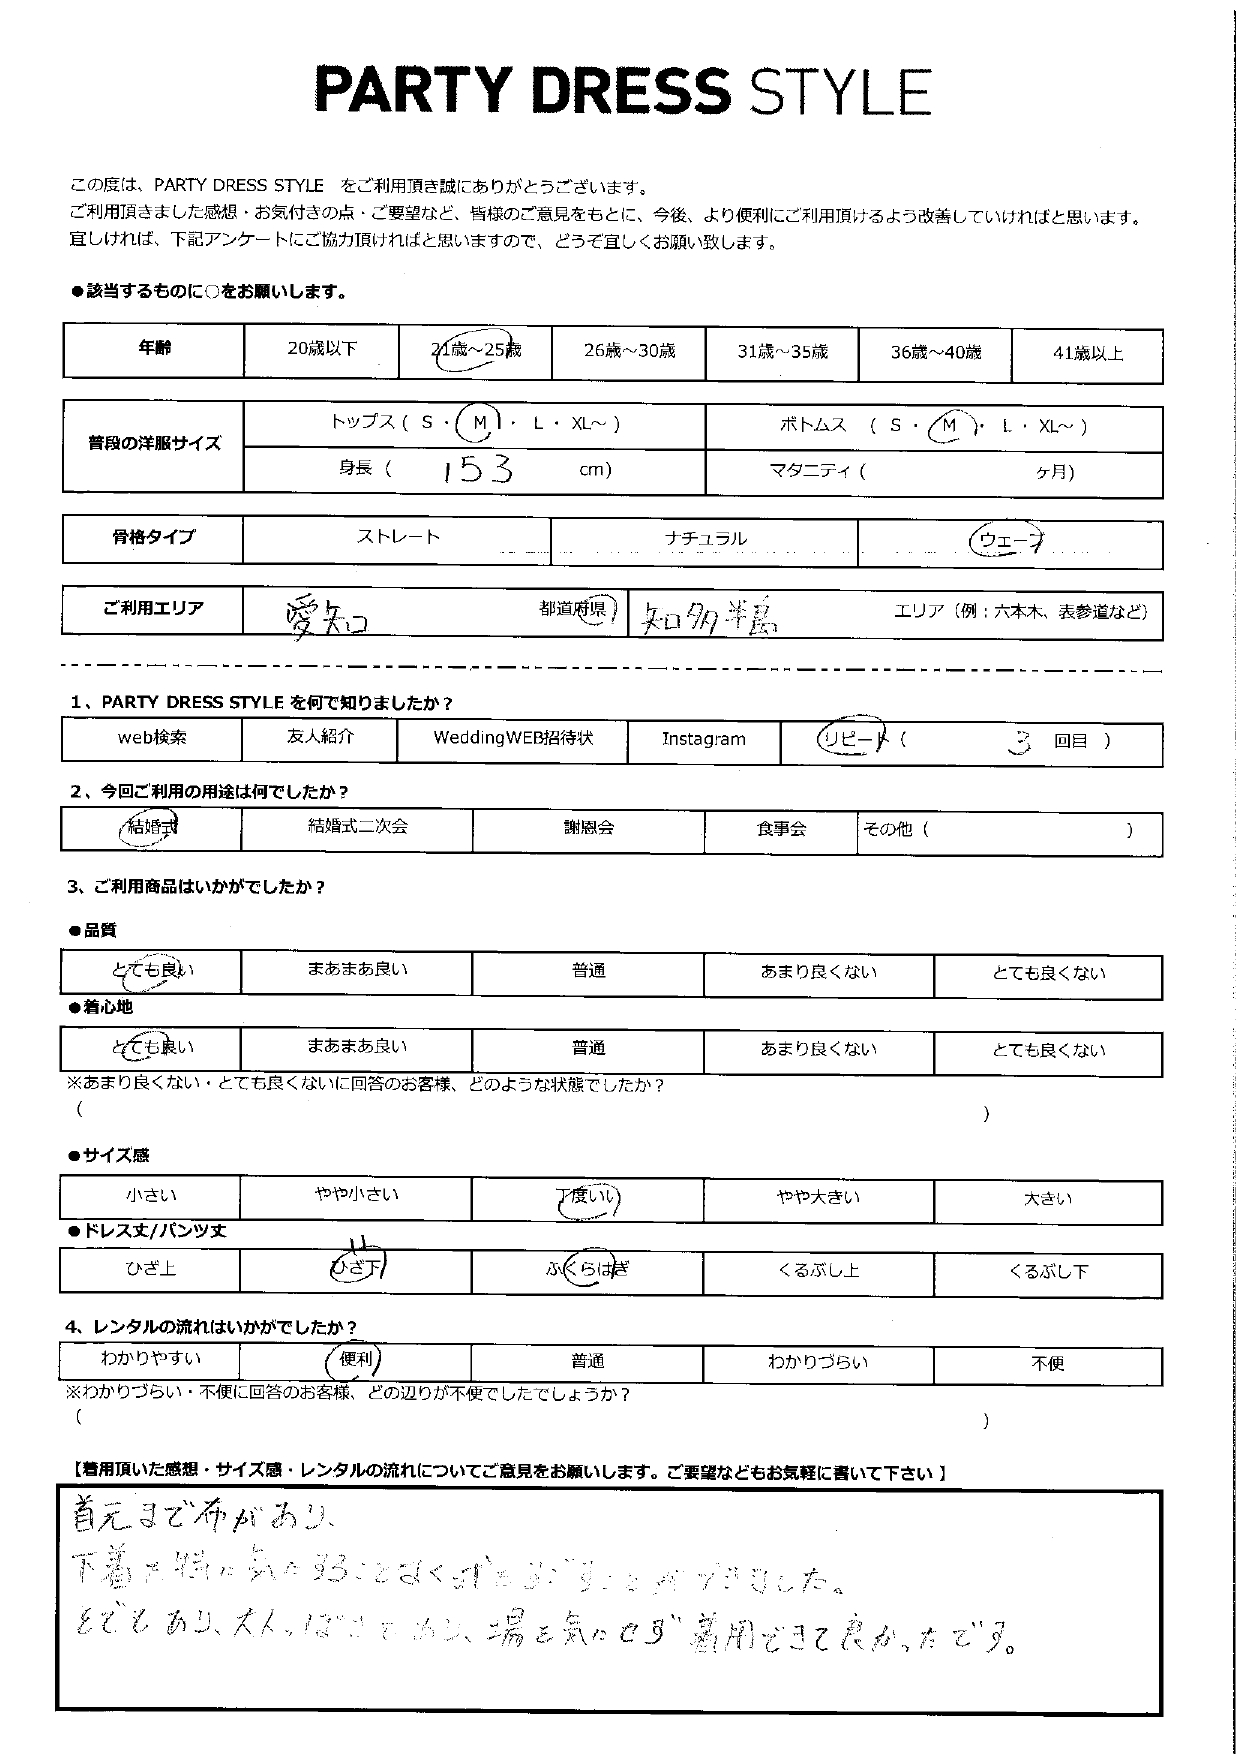 PARTY DRESS STYLE
この度は、PARTY DRESS STYLE をご利用頂き誠にありがとうございます。
ご利用頂きました感想・お気付きの点・ご要望など、皆様のご意見をもとに、今後、より便利にご利用頂けるよう改善していければと思います。
宜しければ、下記アンケートにご協力頂ければと思いますので、どうぞ宜しくお願い致します。
●該当するものに○をお願いします。
年齢 20歳以下 21歳～25歳 26歳～30歳 31歳～35歳 36歳～40歳 41歳以上
普段の洋服サイズ
トップス（ S ・ M ・ L ・ XL～ ） ボトムス （ S ・ M ・ L ・ XL～ ）
身長（ 153 cm） マタニティ（ ヶ月）
骨格タイプ ストレート ナチュラル ウェーブ
ご利用エリア 愛知 都道府県 知多半島 エリア（例；六本木、表参道など）
1、PARTY DRESS STYLE を何で知りましたか？
web検索 友人紹介 WeddingWEB招待状 Instagram リピート（ 3 回目 ）
2、今回ご利用の用途は何でしたか？
結婚式 結婚式二次会 謝恩会 食事会 その他（ ）
3、ご利用商品はいかがでしたか？
●品質
とても良い まあまあ良い 普通 あまり良くない とても良くない
●着心地
とても良い まあまあ良い 普通 あまり良くない とても良くない
※あまり良くない・とても良くないに回答のお客様、どのような状態でしたか？
（ ）
●サイズ感
小さい やや小さい 丁度いい やや大きい 大きい
●ドレス丈/パンツ丈
ひざ上 ひざ下 ふくらはぎ くるぶし上 くるぶし下
4、レンタルの流れはいかがでしたか？
わかりやすい 便利 普通 わかりづらい 不便
※わかりづらい・不便に回答のお客様、どの辺りが不便でしたでしょうか？
（ ）
【着用頂いた感想・サイズ感・レンタルの流れについてご意見をお願いします。ご要望などもお気軽に書いて下さい 】
首元まで布があり、
下着を特に気にすることなく すごすことができました。
そでもあり、大人っぽさもあり、場を気にせず着用できて良かったです。